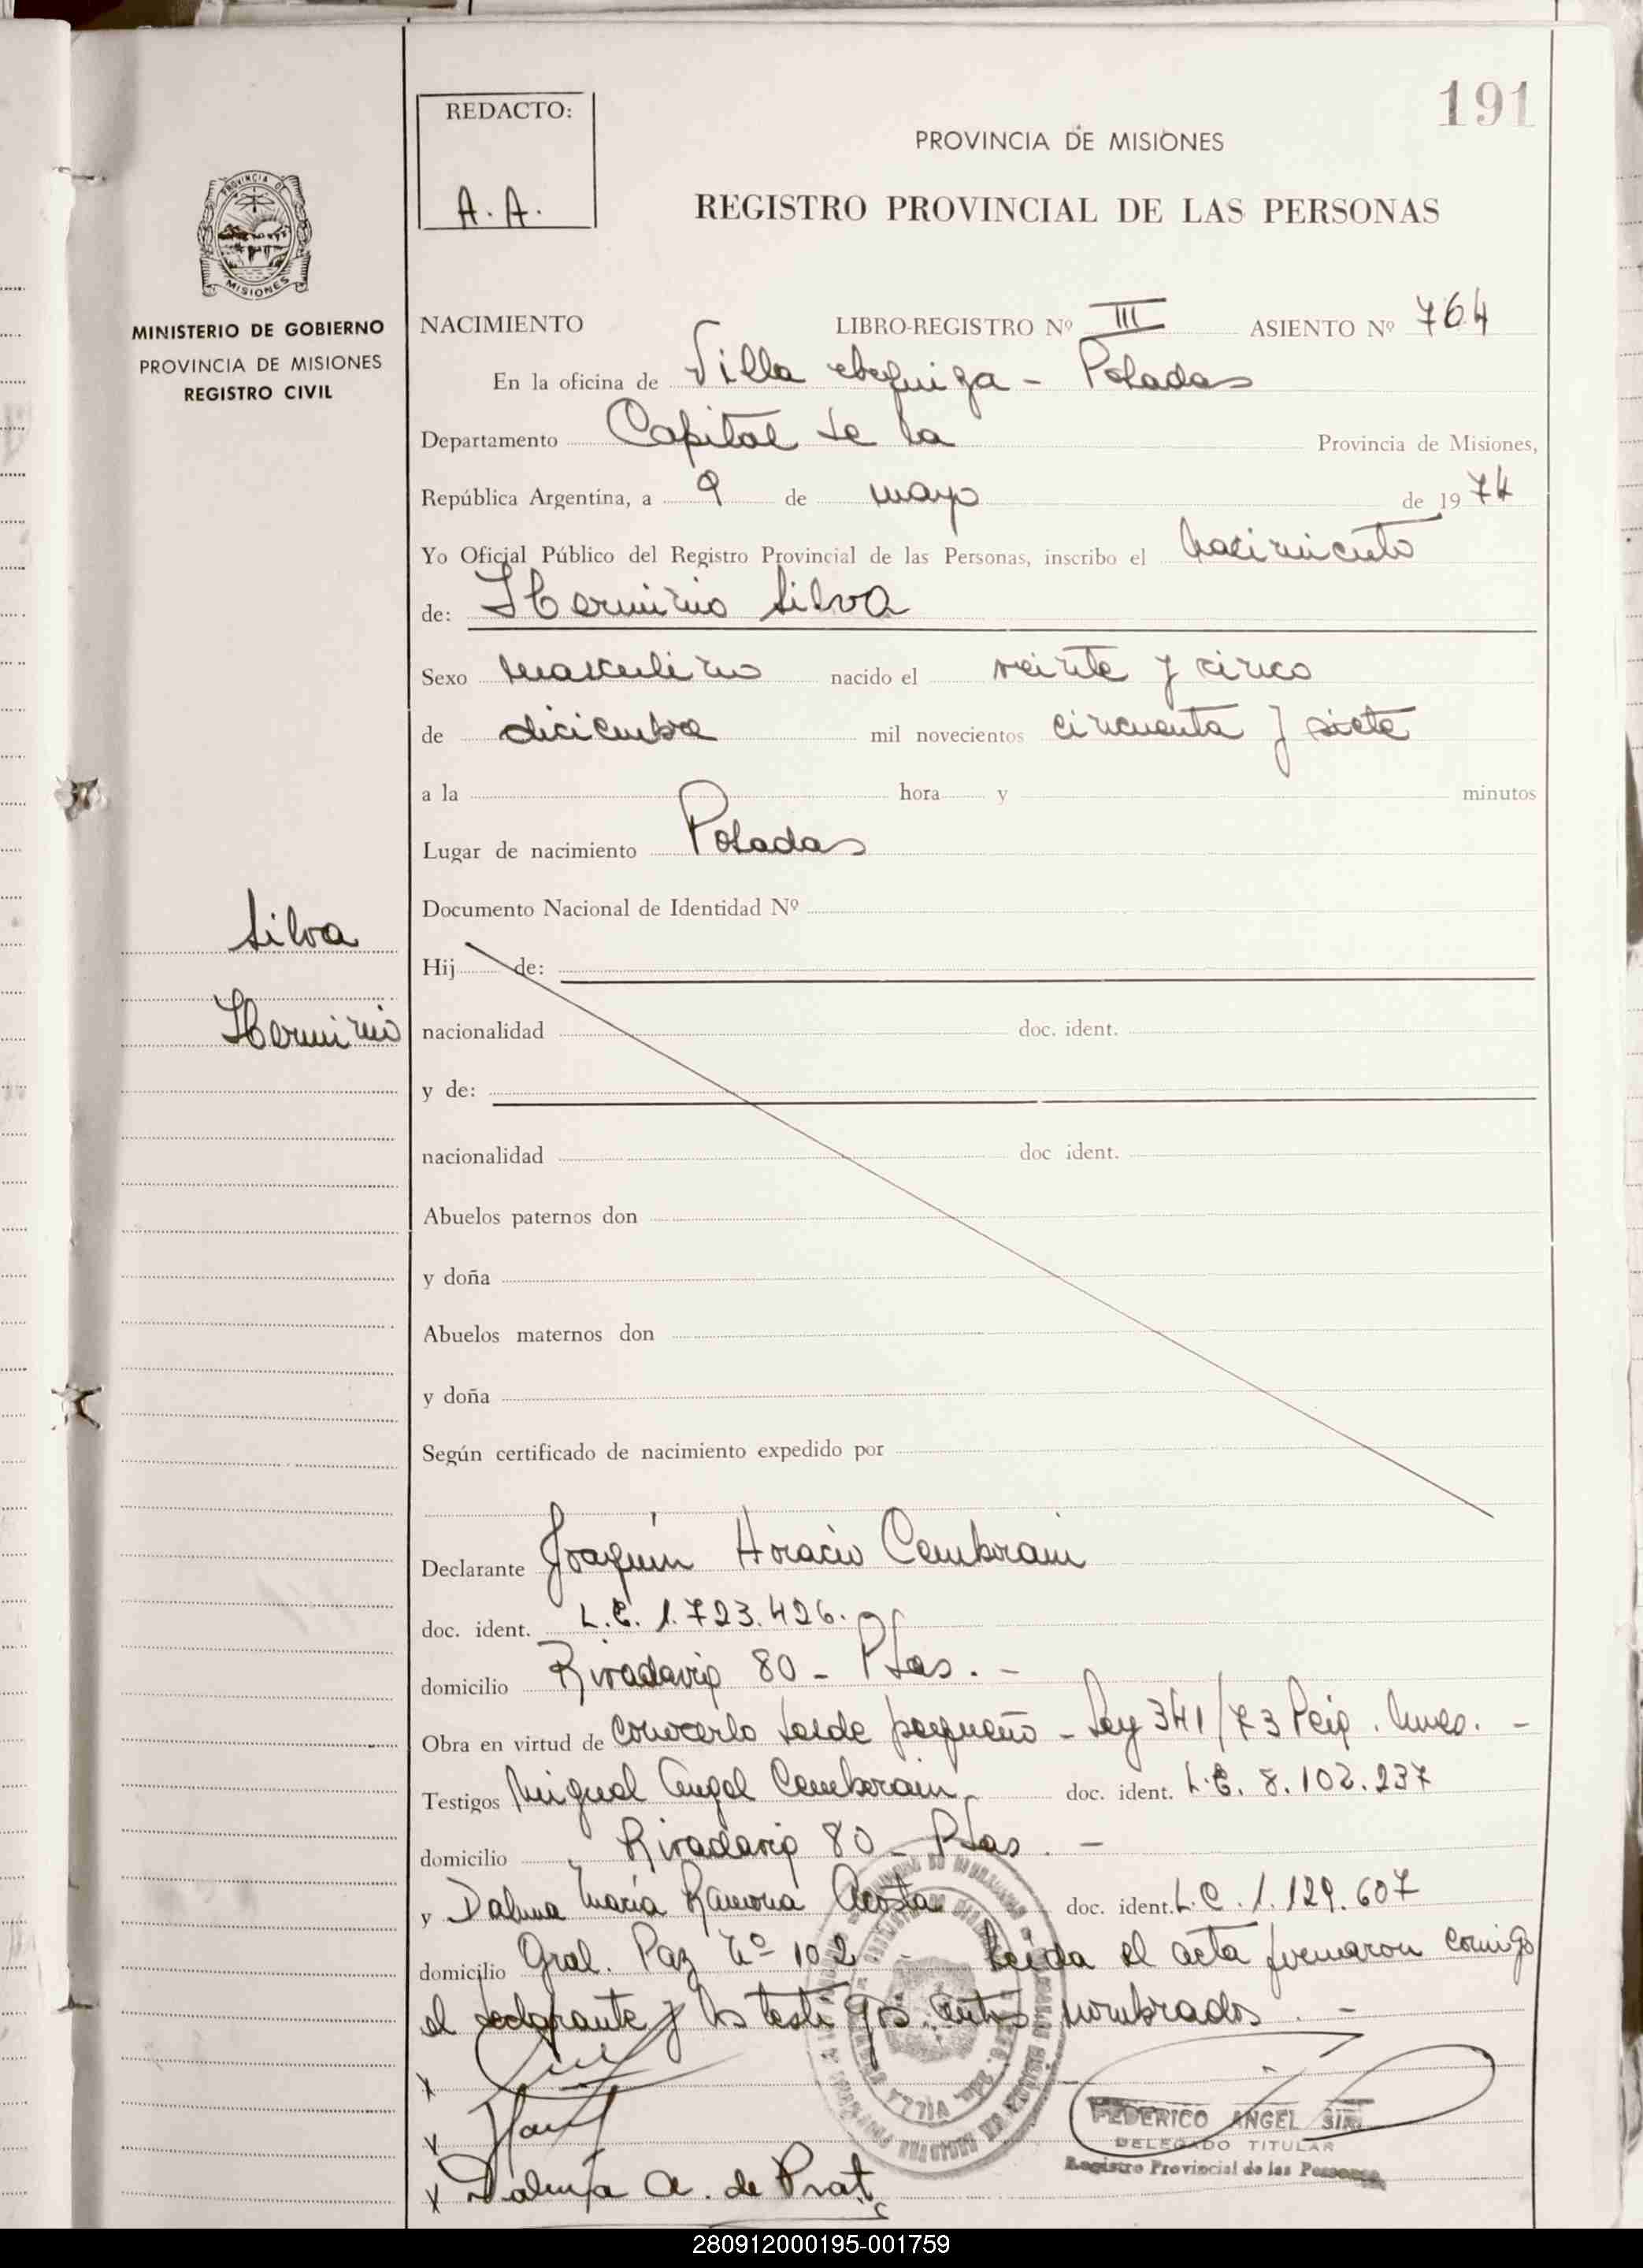 191
REDACTO:
A. A.
PROVINCIA DE MISIONES
REGISTRO PROVINCIAL DE LAS PERSONAS
PROVINCIA DE
MISIONES
MINISTERIO DE GOBIERNO
PROVINCIA DE MISIONES
REGISTRO CIVIL
NACIMIENTO LIBRO-REGISTRO Nº III ASIENTO Nº 764
En la oficina de Villa - Posadas
Departamento Capital de la Provincia de Misiones,
República Argentina, a 9 de mayo de 1974
Yo Oficial Público del Registro Provincial de las Personas, inscribo el nacimiento
de: Herminio Silva
Sexo masculino nacido el veinte y cinco
de diciembre mil novecientos cincuenta y siete
a la hora y minutos
Lugar de nacimiento Posadas
Documento Nacional de Identidad Nº
Silva
Herminio
Hij de:
nacionalidad doc. ident.
y de:
nacionalidad doc ident.
Abuelos paternos don
y doña
Abuelos maternos don
y doña
Según certificado de nacimiento expedido por
Declarante Joaquín Horacio Cemborain
doc. ident. L.E. 1.723.426.
domicilio Rivadavia 80 - Pdas. -
Obra en virtud de conocerlo desde pequeño - Ley 341/73 -
Testigos Miguel Angel Cemborain doc. ident. L.E. 8.102.237
domicilio Rivadavia 80 - Pdas. -
y Dalma María Ramona Acosta doc. ident. L.C. 1.129.607
domicilio Gral. Paz Nº 102 - Leída el acta firmaron conmigo
el declarante y los testigos nombrados. -
x
x
x Dalma A. de Prat
FEDERICO ANGEL
DELEGADO TITULAR
Registro Provincial de las Personas
280912000195-001759